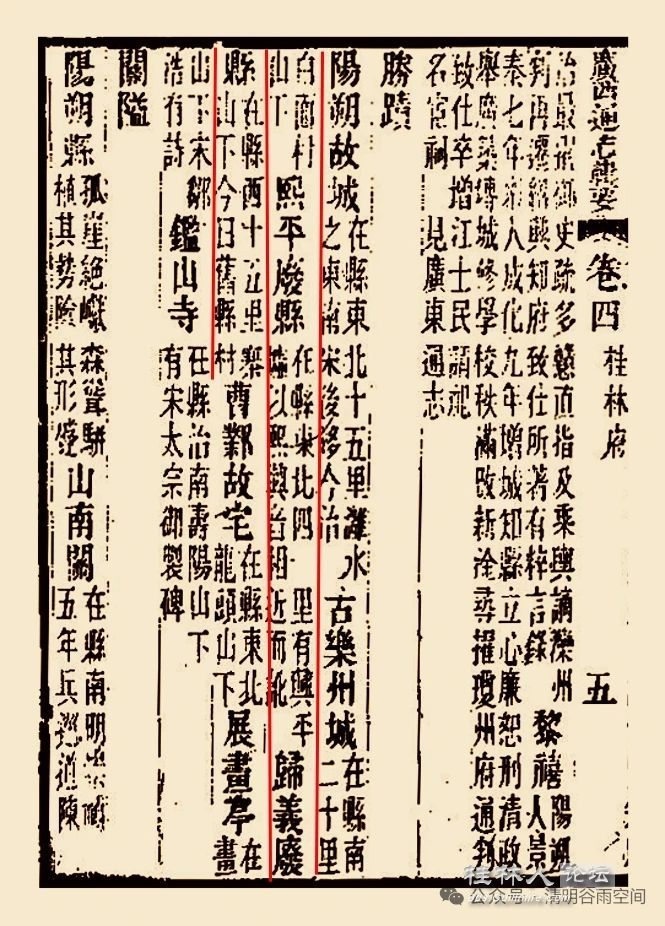 廣西通志輯要 卷四 桂林府 五
治最擢御史疏多戇直指及乘輿謫灤州
判再遷紹興知府致仕所著有粹言錄 黎禧 陽朔
人景
泰七年人成化九年增城知縣立心廉恕刑清政
舉廣築塼城修學校秩滿改新淦尋擢瓊州府通判
致仕卒增江士民請祀
名宦祠見廣東通志
勝蹟
陽朔故城 在縣東北十五里灕水
之東南宋後移今治 古樂州城 在縣南
二十里
白面村
山下 熙平廢縣 在縣東北四 里有興平
以熙興音相近而訛 歸義廢
縣 在縣西十五里
山下今曰舊縣村 曹鄴故宅 在縣東北
龍頭山下 展畫亭 在
畫
山下宋鄒
浩有詩 鑑山寺 在縣治南壽陽山下
有宋太宗御製碑
關隘
陽朔縣 孤崖絕巘森聳駢
植其勢險其形 山南關 在縣南明崇禎
五年兵巡道陳
桂林人论坛
公众号 · 清明谷雨空间